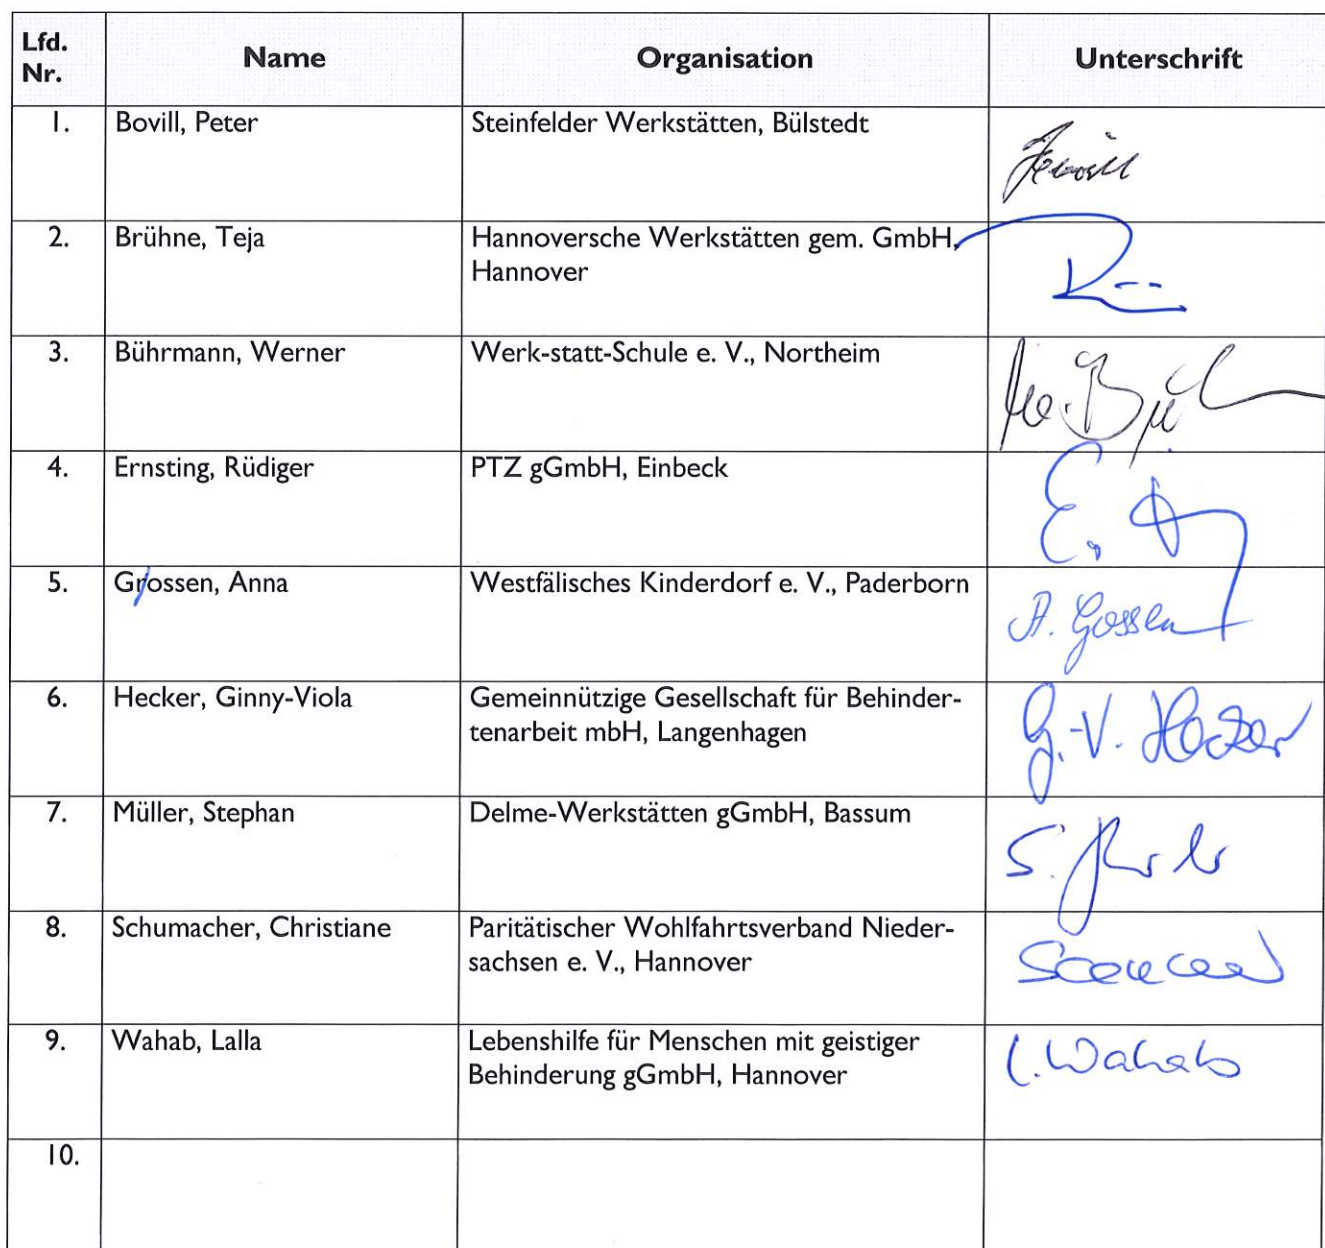 Lfd. Nr. Name Organisation Unterschrift
1. Bovill, Peter Steinfelder Werkstätten, Bülstedt
2. Brühne, Teja Hannoversche Werkstätten gem. GmbH,
Hannover
3. Bührmann, Werner Werk-statt-Schule e. V., Northeim
4. Ernsting, Rüdiger PTZ gGmbH, Einbeck
5. Grossen, Anna Westfälisches Kinderdorf e. V., Paderborn A. Gossen
6. Hecker, Ginny-Viola Gemeinnützige Gesellschaft für Behinder- G.-V. Hecker
tenarbeit mbH, Langenhagen
7. Müller, Stephan Delme-Werkstätten gGmbH, Bassum
8. Schumacher, Christiane Paritätischer Wohlfahrtsverband Nieder-
sachsen e. V., Hannover
9. Wahab, Lalla Lebenshilfe für Menschen mit geistiger L. Wahab
Behinderung gGmbH, Hannover
10.